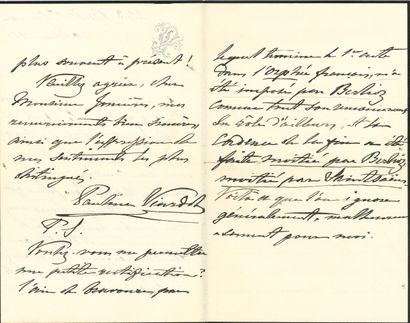 plus souvent à présent!
Veuillez agréer, cher
Monsieur, mes
remerciements bien sincères,
ainsi que l'expression de
mes sentiments les plus
distingués.
Pauline Viardot
P.S.
Voulez-vous me permettre
une petite rectification?
l'air de Bravoure, par
lequel termine le 1er acte
dans l'Orphée français, m'a
été imposé par Berlioz
comme tout
du rôle d'ailleurs. Et la
Cadence de la fin a été
faite moitié par Berlioz
moitié par Saint Saëns.
Voilà ce que l'on ignore
généralement, malheureu-
sement pour moi.